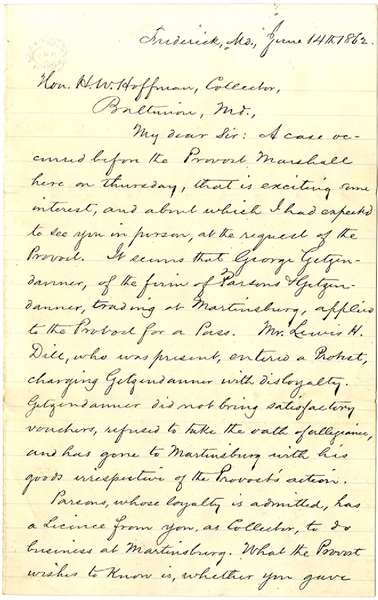 Frederick, Md., June 14th 1862.
Hon. H. W. Hoffman, Collector,
Baltimore, Md.,
My dear Sir: A case oc-
curred before the Provost Marshall
here on thursday, that is exciting some
interest, and about which I had expected
to see you in person, at the request of the
Provost. It seems that George Getzen-
danner, of the firm of Parsons & Getzen-
danner, trading at Martinsburg, applied
to the Probost for a Pass. Mr. Lewis H.
Dill, who was present, entered a Protest,
charging Getzendanner with disloyalty.
Getzendanner did not bring satisfactory
vouchers, refused to take the oath of allegiance,
and has gone to Martinsburg with his
goods irrespective of the Provost's action.
Parsons, whose loyalty is admitted, has
a Licence from you, as Collector, to do
business at Martinsburg. What the Provost
wishes to Know is, whether you gave